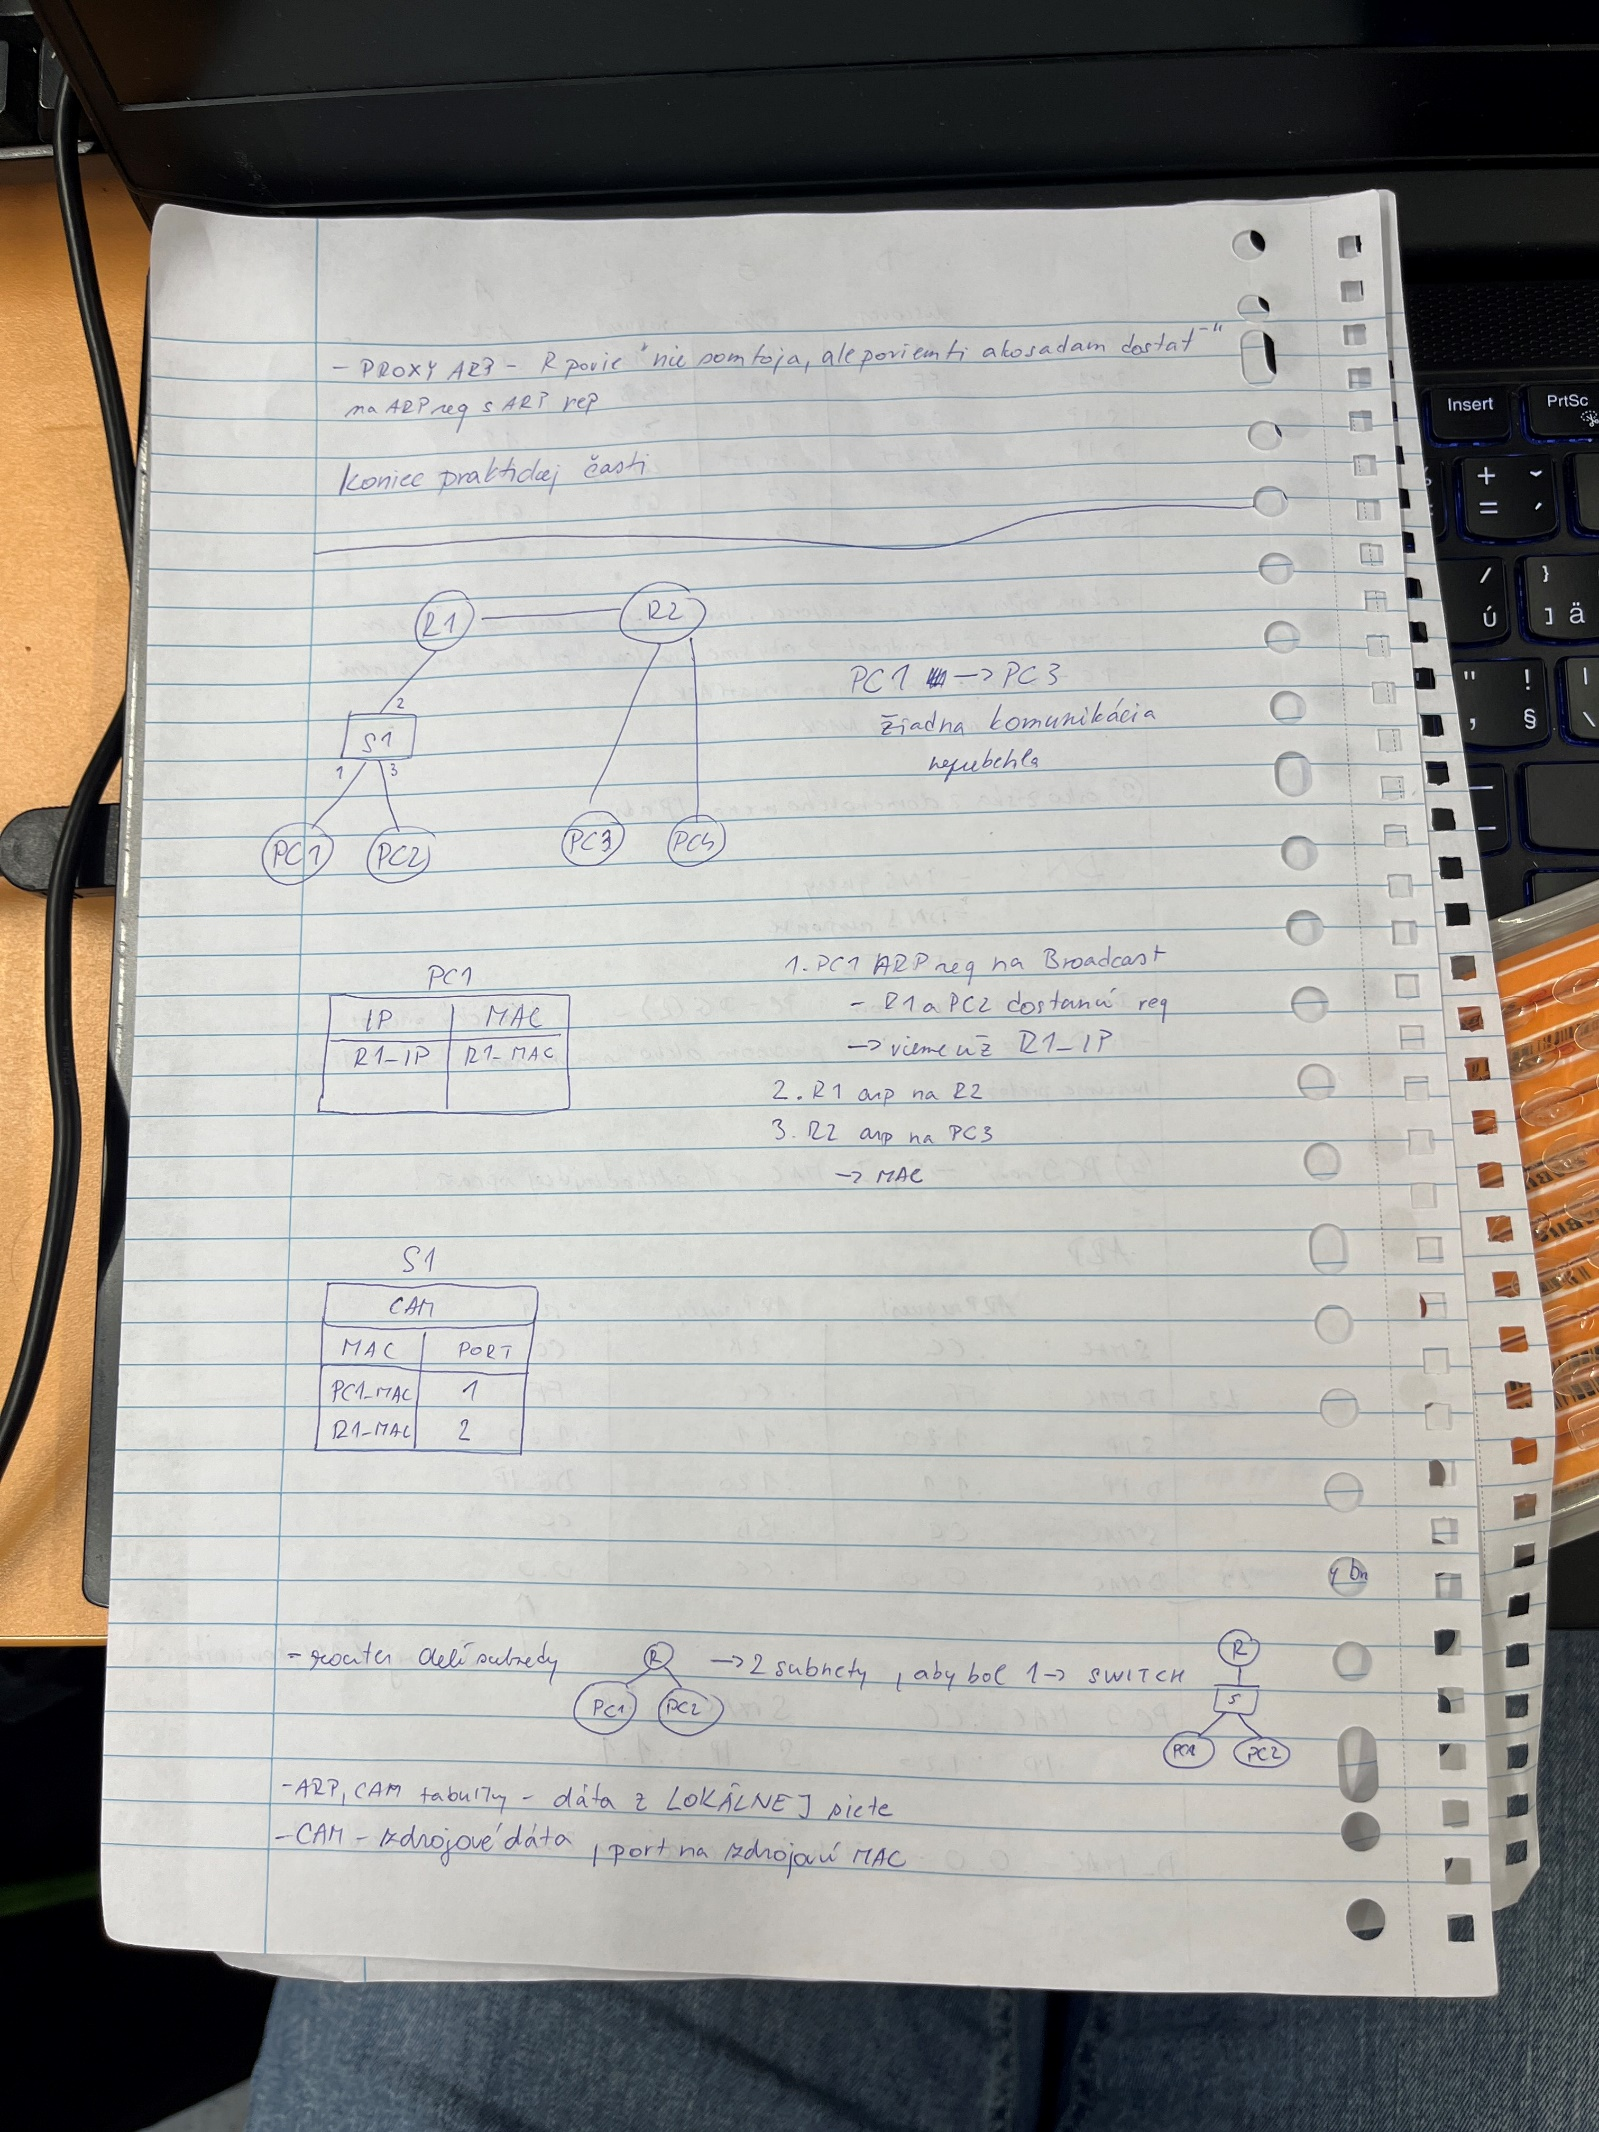 - PROXY ARP - R povie "nie som to ja, ale poviem ti ako sa dam dostat"
na ARP req s ARP rep
Koniec praktickej časti
R1
R2
2
S1
1
3
PC1
PC2
PC3
PC4
PC1 -> PC3
žiadna komunikácia
neprebehla
PC1
IP MAC
R1_IP R1_MAC
1. PC1 ARP req na Broadcast
- R1 a PC2 dostanú req
-> vieme už R1_IP
2. R1 arp na R2
3. R2 arp na PC3
-> MAC
S1
CAM
MAC PORT
PC1_MAC 1
R1_MAC 2
- router delí subnety
R
PC1
PC2
-> 2 subnety, aby bol 1 -> SWITCH
R
S
PC1
PC2
- ARP, CAM tabuľky - dáta z LOKÁLNEJ siete
- CAM - zdrojové dáta, port na zdrojovú MAC
Insert
PrtSc
+
=
ˇ
´
/
ú
}
]
ä
"
!
§